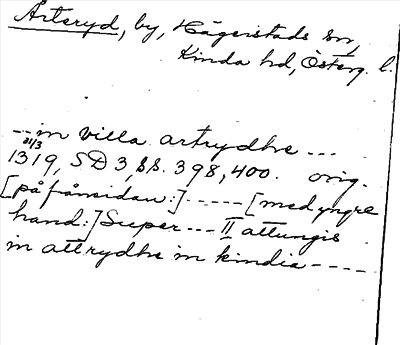 Arteryd, by, Hägerstads sn,
Kinda hd, Österg. l.
--- in villa artrydhe ---
31/3
1319, SD 3, ss. 398, 400. orig.
[på frånsidan:] ----- [med yngre
hand:] Super --- II attungis
in attrydhe in kindie ----